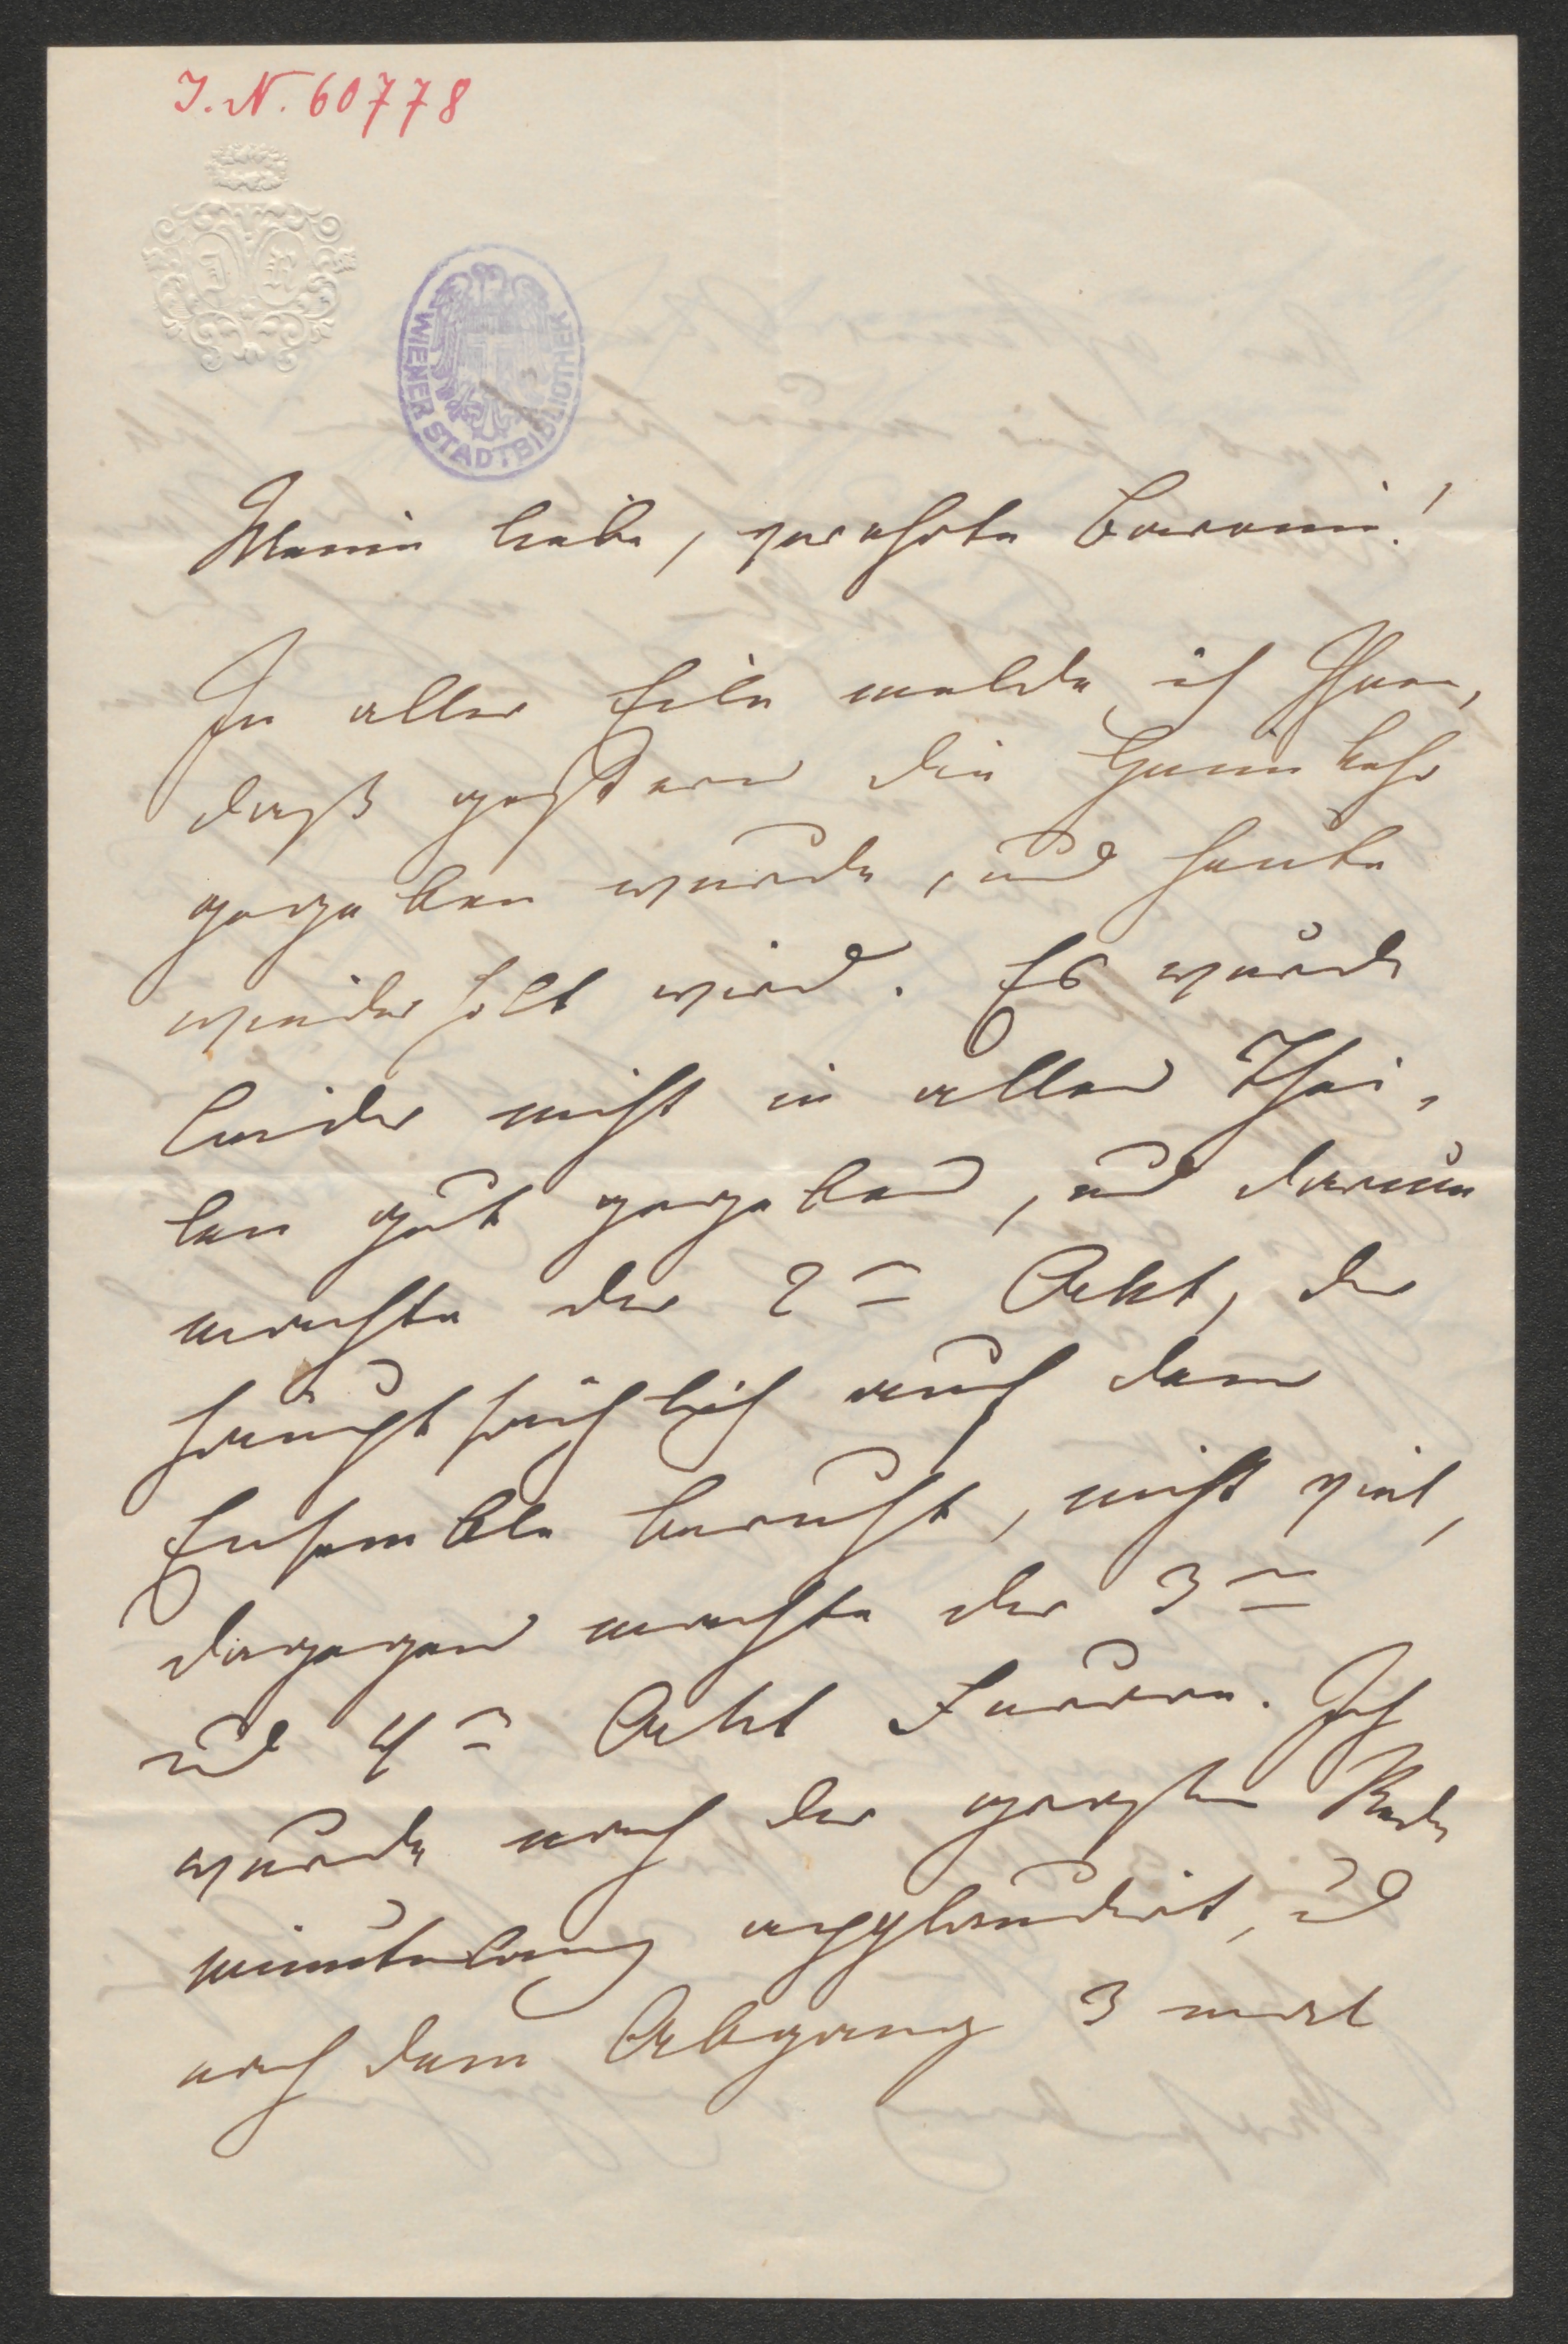 I. N. 60778
J R
WIENER STADTBIBLIOTHEK
Meine liebe, verehrte Baronin!
In aller Eile melde ich Ihnen,
daß gestern die Heimkehr
gegeben wurde, und heute
wiederholt wird. Es wurde
leider nicht in allen Thei-
len gut gegeben, und darum
machte der 2te Akt, der
hauptsächlich auf dem
Ensemble beruht, nicht viel,
dagegen machte der 3te
und 4te Akt Furore. Ich
wurde nach der großen Rede
minutenlang applaudirt, und
nach dem Abgang 3 mal